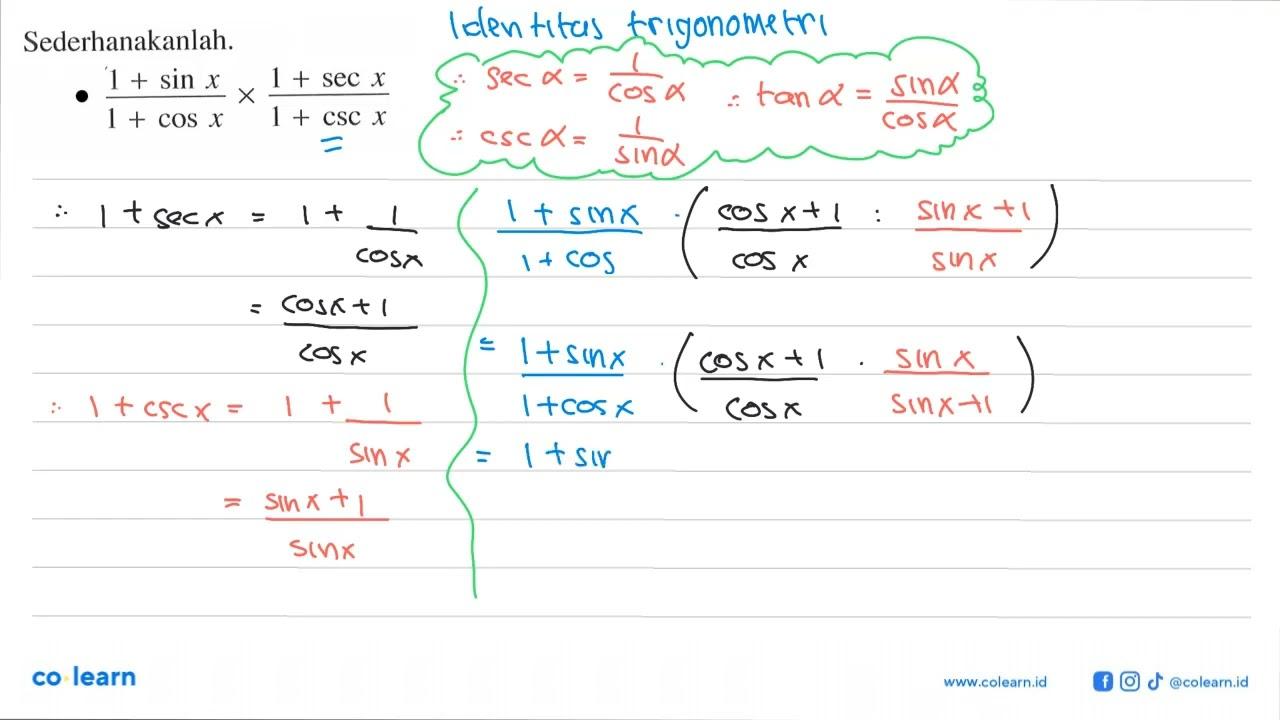 Identitas trigonometri
Sederhanakanlah.
• (1 + sin x)/(1 + cos x) × (1 + sec x)/(1 + csc x)
=
∴ sec α = 1/cos α ∴ tan α = sin α/cos α
∴ csc α = 1/sin α
∴ 1 + sec x = 1 + 1/cos x
= (cos x + 1)/cos x
∴ 1 + csc x = 1 + 1/sin x
= (sin x + 1)/sin x
(1 + sin x)/(1 + cos) · ((cos x + 1)/cos x : (sin x + 1)/sin x)
= (1 + sin x)/(1 + cos x) · ((cos x + 1)/cos x · sin x/(sin x + 1))
= 1 + sin
co learn
www.colearn.id
@colearn.id